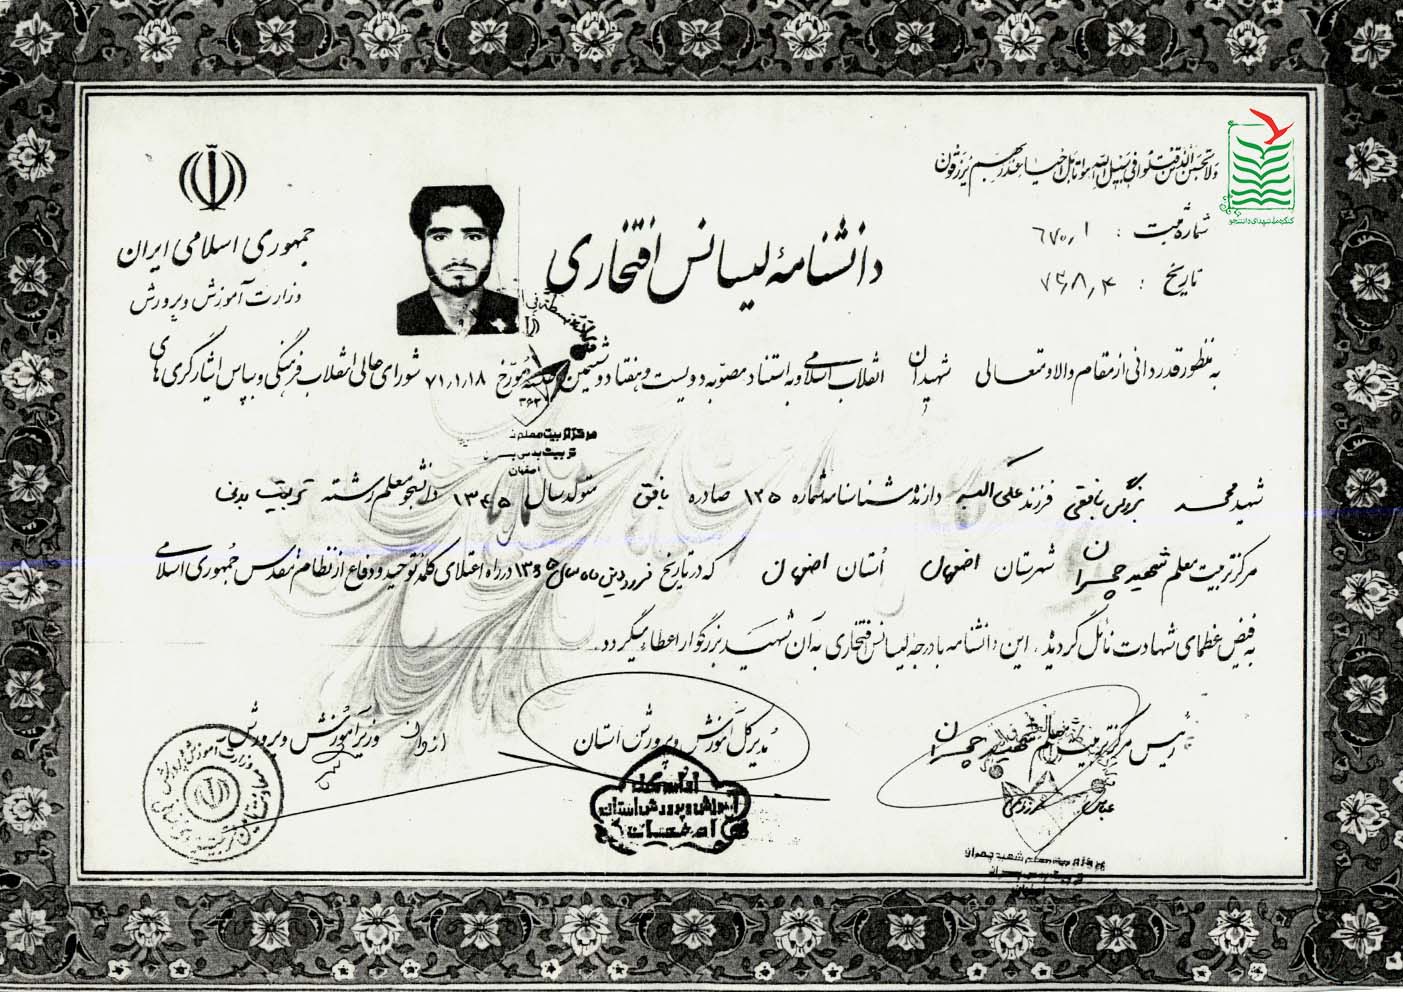 ولا تحسبن الذین قتلوا فی سبیل الله امواتا بل احیاء عند ربهم یرزقون
کنگره ملی شهدای دانشجو
شماره ثبت : ۶۷۰٫۱
تاریخ :
جمهوری اسلامی ایران
وزارت آموزش و پرورش
دانشنامهٔ لیسانس افتخاری
به منظور قدردانی از مقام والا و متعالی شهیدان انقلاب اسلامی و به استناد مصوبه دویست و هفتاد و ششمین جلسه مورخ ۷۱٫۱٫۱۸ شورای عالی انقلاب فرهنگی و بپاس ایثارگری های
مرکز تربیت معلم
اصفهان
شهید محمد بافقی فرزند علی اکبر دارنده شناسنامه شماره ۱۲۵ صادره بافق متولد سال ۱۳۴۵ دانشجو معلم رشته تربیت بدنی
مرکز تربیت معلم شهید چمران شهرستان اصفهان استان اصفهان که در تاریخ فروردین ماه سال ۱۳۶۵ در راه اعتلای کلمهٔ توحید و دفاع از نظام مقدس جمهوری اسلامی
به فیض عظمای شهادت نائل گردید. این دانشنامه با درجه لیسانس افتخاری به آن شهید بزرگوار اعطاء میگردد.
رئیس مرکز تربیت معلم شهید چمران
مدیر کل آموزش و پرورش استان
از وان وزیر آموزش و پرورش
اداره کل
آموزش و پرورش استان
اصفهان
مرکز تربیت معلم شهید چمران